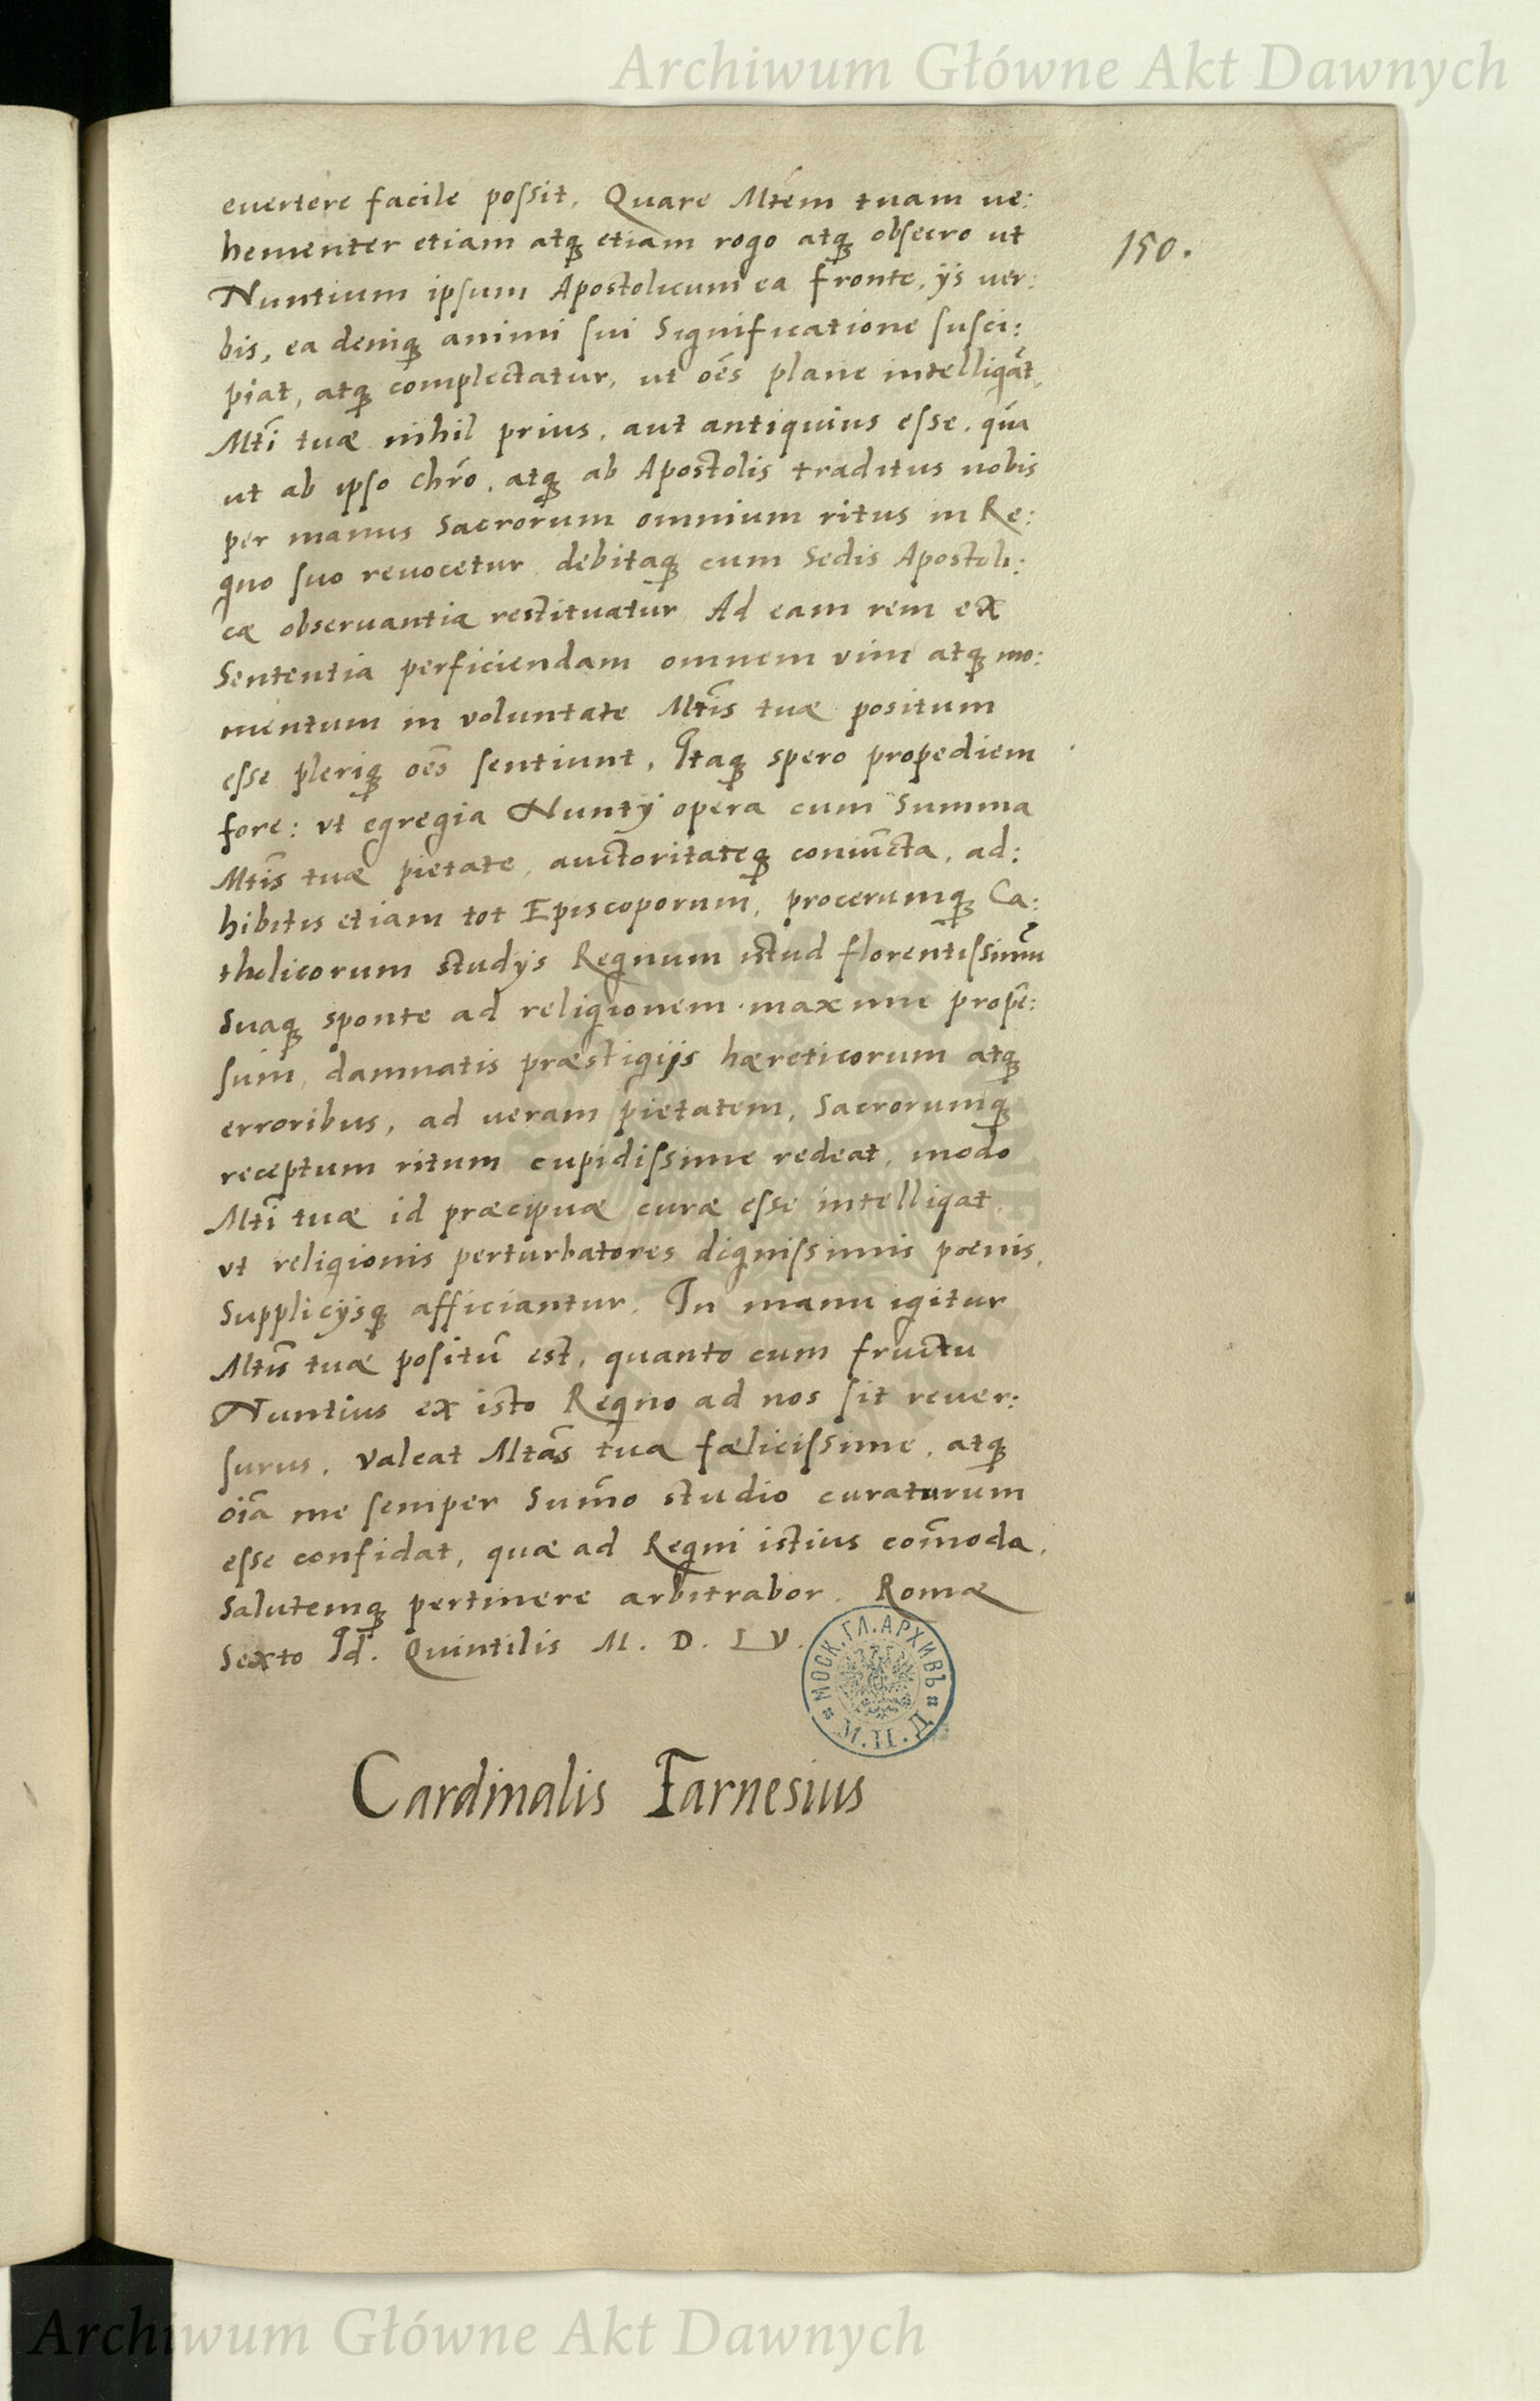 Archiwum Główne Akt Dawnych
euertere facile possit. Quare Mtem tuam ue:
hementer etiam atq; etiam rogo atq; obsecro ut
150.
Nuntium ipsum Apostolicum ea fronte, ijs uer:
bis, ea deniq; animi sui Significatione susci:
piat, atq; complectatur, ut oēs plane intelligāt,
Mti tuæ nihil prius, aut antiquius esse, quā
ut ab ipso Chrō, atq; ab Apostolis traditus nobis
per manus Sacrorum omnium ritus in Re:
gno suo reuocetur debitaq; cum Sedis Apostoli:
cæ obseruantia restituatur. Ad eam rem ex
Sententia perficiendam omnem vim atq; mo:
mentum in voluntate Mtis tuæ positum
esse pleriq; oēs sentiunt. Itaq; spero propediem
fore: vt egregia Nuntij opera cum Summa
Mtis tuæ pietate, auctoritateq; coniūcta, ad:
hibitis etiam tot Episcoporum, procerumq; Ca:
tholicorum studijs Regnum istud florentissimū
Suaq; sponte ad religionem maxime propē:
sum, damnatis præstigijs hæreticorum atq;
erroribus, ad ueram pietatem, Sacrorumq;
receptum ritum cupidissime redeat, modo
Mti tuæ id præcipuæ curæ esse intelligat,
vt religionis perturbatores dignissimis pœnis,
Supplicijsq; afficiantur. In manu igitur
Mtis tuæ positū est, quanto cum fructu
Nuntius ex isto Regno ad nos sit reuer:
surus. Valeat Mtas tua fælicissime, atq;
oīa me semper Sum̄o studio curaturum
esse confidat, quæ ad Regni istius com̄oda,
Salutemq; pertinere arbitrabor. Romæ
Sexto Id. Quintilis M. D. L V.
МОСК. ГЛ. АРХИВЪ
М.И.Д
Cardinalis Farnesius
Archiwum Główne Akt Dawnych